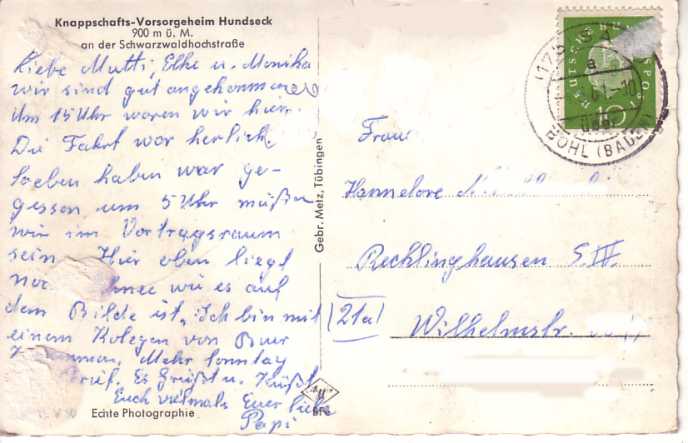 Knappschafts-Vorsorgeheim Hundseck
900 m ü. M.
an der Schwarzwaldhochstraße
Liebe Mutti, Elke u. Monika
wir sind gut angekommen
Um 15 Uhr waren wir hier.
Die Fahrt war herlich.
Soeben haben war ge-
gessen um 5 Uhr müßen
wir im Vortragsraum
sein. Hier oben liegt
wie es auf
dem Bilde ist, Ich bin mit
einem Kolegen von Buer
Mehr Sonntag
Es Grüßt u. Küßt
Euch vielmals Euer lieber
Papi
Echte Photographie
Gebr. Metz, Tübingen
DEUTSCHE BUNDESPOST
10
BÜHL (BADEN)
Frau
Hannelore
Recklinghausen S. IV
(21a)
Wilhelmstr.